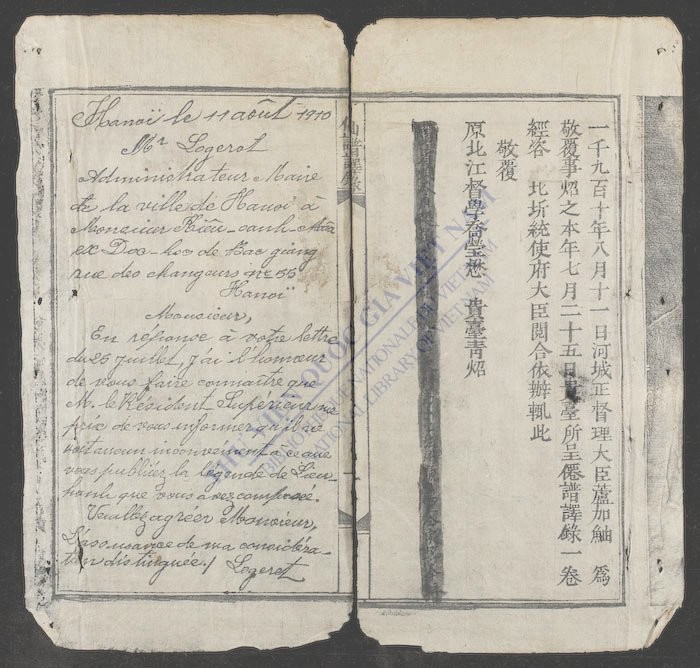 一千九百十年八月十一日河城正督理大臣蘆加䌷 爲
敬覆事炤之本年七月二十五日貴臺所呈僊譜譯錄一卷
經咨 北圻統使府大臣閱合依辦輒此
敬覆
原北江督學喬瑩懋 貴臺青炤
仙譜譯錄
Hanoï le 11 août 1910
Mr Logerot
Administrateur Maire
de la ville de Hanoï à
Monsieur Kiêu-oanh-Mâu
ex Doc-hoc de Bac giang
rue des changeurs no 55
Hanoï
Monsieur,
En réponse à votre lettre
du 25 juillet, j'ai l'honneur
de vous faire connaître que
M. le Résident Supérieur me
prie de vous informer qu'il ne
voit aucun inconvenient à ce que
vous publiiez la légende de Lieu-
hanh que vous avez composée.
Veuillez agréer Monsieur,
l'assurance de ma considéra-
tion distinguée./ Logerot
THƯ VIỆN QUỐC GIA VIỆT NAM
BIBLIOTHÈQUE NATIONALE DU VIETNAM
NATIONAL LIBRARY OF VIETNAM